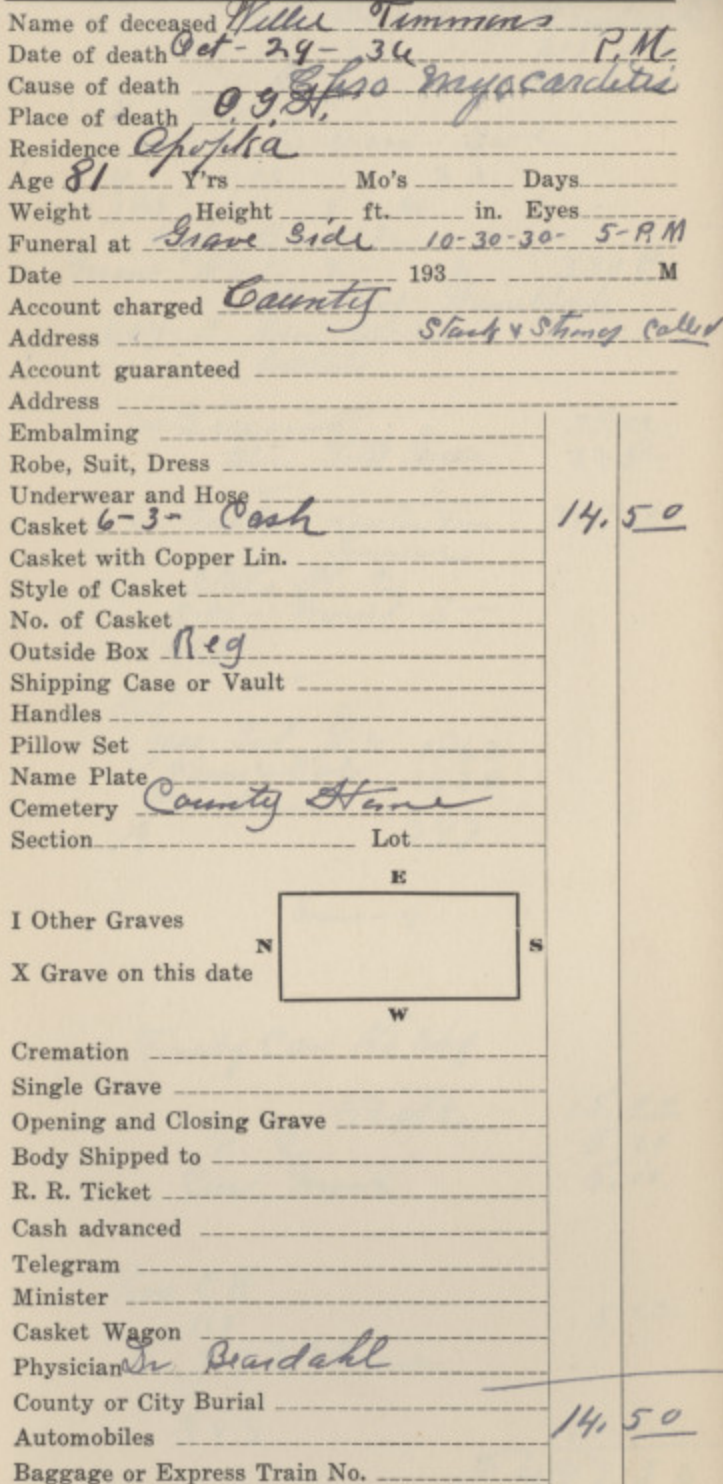 Name of deceased Willie Timmons
Date of death Oct - 29 - 36 P.M
Cause of death Chro Myocarditis
Place of death O.G.H.
Residence Apopka
Age 81 Y'rs Mo's Days
Weight Height ft. in. Eyes
Funeral at Grave Side 10-30-30- 5-P.M
Date 193 M
Account charged County
Address Stark & Strong Called
Account guaranteed
Address
Embalming
Robe, Suit, Dress
Underwear and Hose
Casket 6-3- Cash 14.50
Casket with Copper Lin.
Style of Casket
No. of Casket
Outside Box Reg
Shipping Case or Vault
Handles
Pillow Set
Name Plate
Cemetery County Home
Section Lot
E
I Other Graves
N S
X Grave on this date
W
Cremation
Single Grave
Opening and Closing Grave
Body Shipped to
R. R. Ticket
Cash advanced
Telegram
Minister
Casket Wagon
Physician Dr Beardahl
County or City Burial
14.50
Automobiles
Baggage or Express Train No.